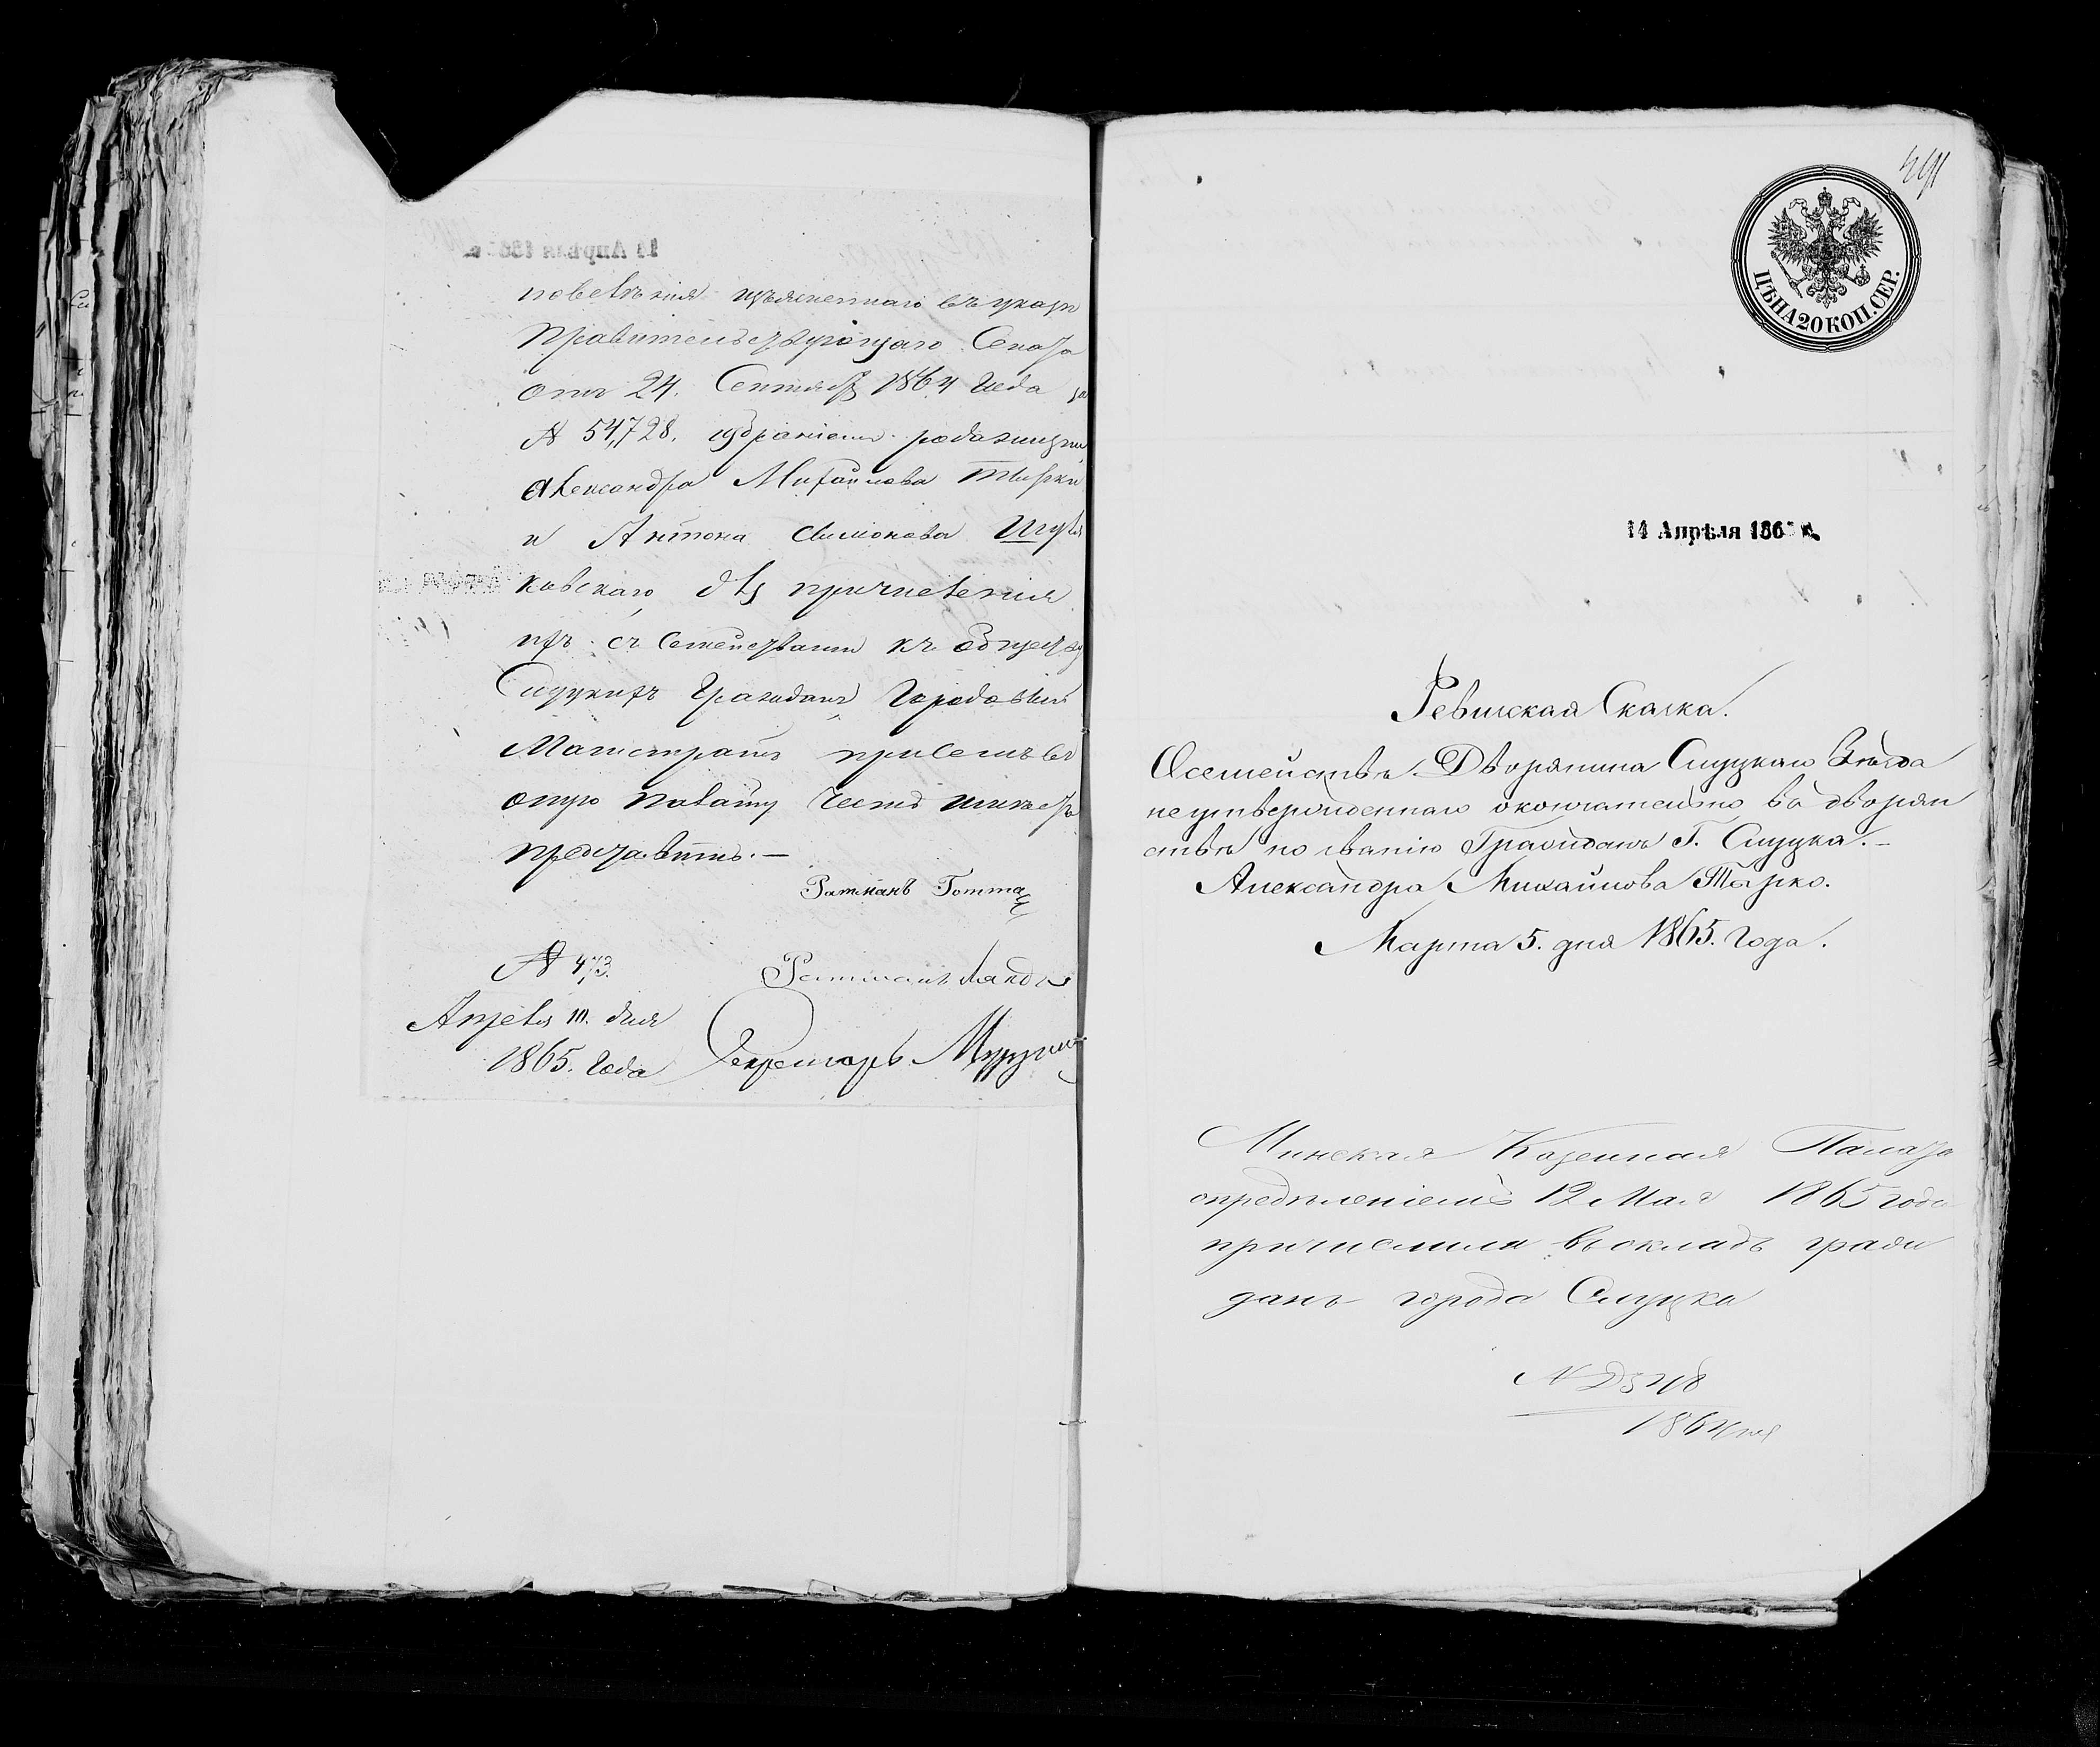 повелѣнія изъясненнаго въ указѣ
Правительствующаго Сената
отъ 24. Сентября 1864 Года за
№ 54,728. избраніемъ рода жизни
Александра Михайлова Тырки
и Антона Симонова
ковскаго, для причисленія
ихъ съ семействами къ обществу
Слуцкихъ Гражданъ Городовый
Магистратъ при семъ въ
оную Палату честь имѣетъ
представить.—
Ратманъ
№ 473.
Ратманъ
Апрѣля 10. дня
1865. Года Секретарь
491
ЦѢНА 20 КОП. СЕР.
14 Апрѣля 186 г.
Ревизская Сказка.
О семействѣ Дворянина Слуцкаго Уѣзда
неутвержденнаго окончательно въ дворян
ствѣ по званію Гражданъ Г. Слуцка.—
Александра Михайлова Тырко.
Марта 5. дня 1865. Года.
Минская Казенная Палата
опредѣленіемъ 12 Мая 1865 года
причислила въ окладъ граж
данъ города Слуцка